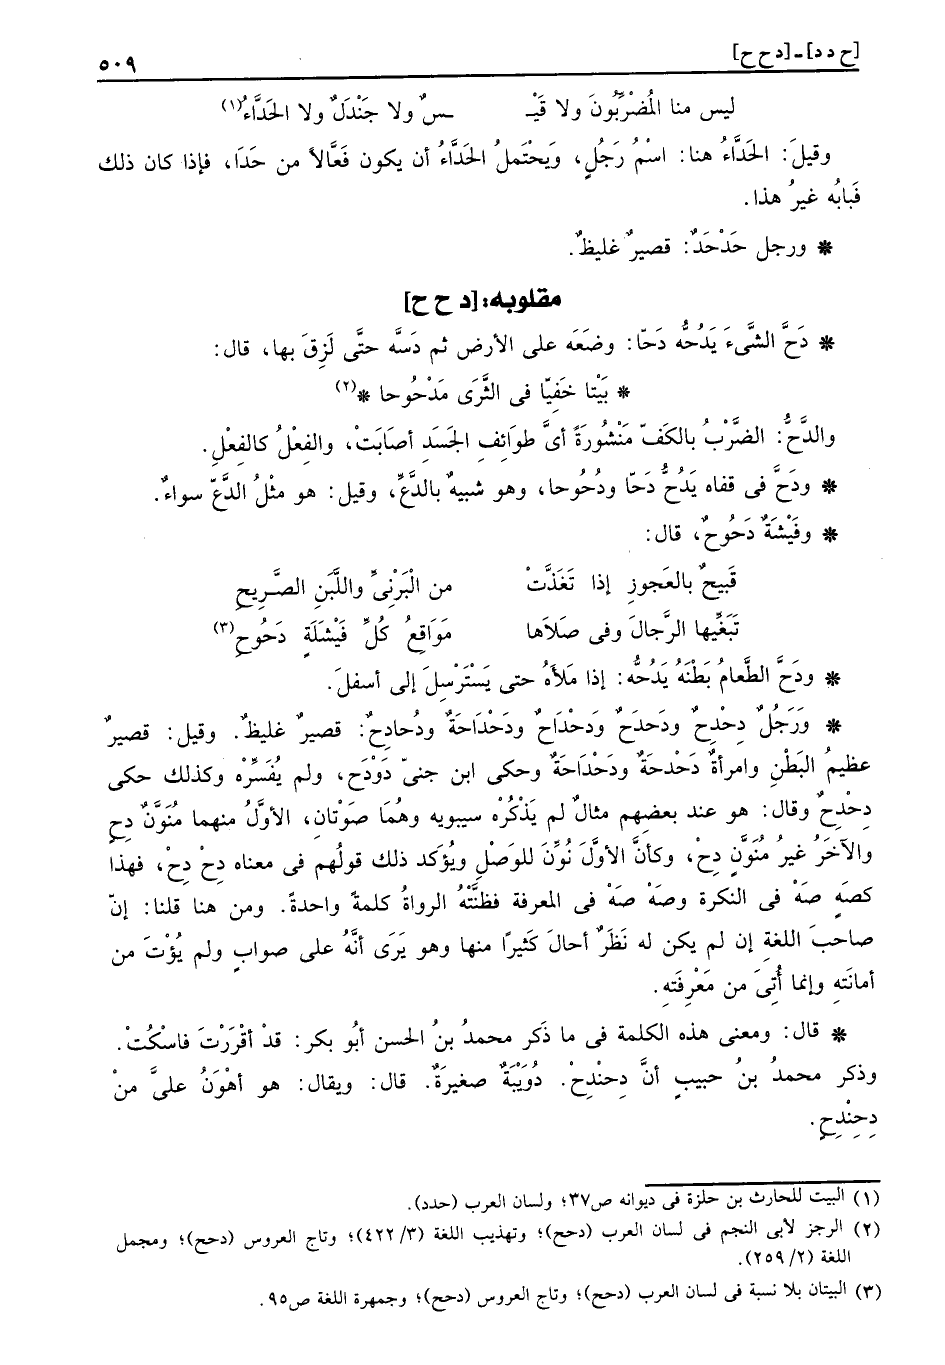 [ح د د] - [د ح ح]
٥٠٩
ليس منا المُضَرِّبُونَ ولا قَيْـ ـسٌ ولا جَنْدَلٌ ولا الحَدَّاءُ(١)
وقيلَ: الحَدَّاءُ هنا: اسْمُ رَجُلٍ، وَيحْتَملُ الحَدَّاءُ أن يكون فَعَّالاً من حَدَا، فإذا كان ذلك
فَبابُه غيرُ هذا.
* ورجل حَدْحَدٌ: قصيرٌ غليظٌ.
مقلوبه: [د ح ح]
* دَحَّ الشَّىءَ يَدُحُّه دَحّا: وضَعَه على الأرض ثم دَسَّه حتَّى لَزِقَ بها، قال:
* بَيْتا خَفِيّا فى الثَّرَى مَدْحُوحا *(٢)
والدَّحُّ: الضَّرْبُ بالكَفّ مَنْشُورَةً أىَّ طوَائِفِ الجَسَد أصَابَتْ، والفِعْلُ كالفِعْلِ.
* ودَحَّ فى قفاه يَدُحُّ دَحّا ودُحُوحا، وهو شبيهٌ بالدَّعِّ، وقيل: هو مثْلُ الدَّعّ سواءٌ.
* وفَيْشَةٌ دَحُوحٌ، قال:
قَبيحٌ بالعَجوزِ إذا تَغَذَّتْ من الْبَرْنِىِّ واللَّبَنِ الصَّرِيحِ
تَبَغِّيها الرّجالَ وفى صَلَاها مَوَاقِعُ كُلِّ فَيْشَلَةٍ دَحُوحِ(٣)
* ودَحَّ الطَّعامُ بَطْنَهُ يَدُحُّه: إذا مَلأهُ حتى يَسْتَرْسِلَ إلى أسفلَ.
* وَرَجُلٌ دِحْدِحٌ ودَحدَحٌ ودَحْدَاحٌ ودَحْدَاحَةٌ ودُحادِحٌ: قصيرٌ غليظٌ. وقيل: قصيرٌ
عظيمُ البَطْنِ وامرأةٌ دَحْدحةٌ ودَحْدَاحَةٌ وحكى ابن جنىّ دَوْدَح، ولم يُفَسِّرْه وكذلك حكى
دِحْدِحٌ وقال: هو عند بعضِهم مثالٌ لم يَذْكُرْه سيبويه وهُمَا صَوْتانِ، الأوَّلُ منهما مُنَوَّنٌ دِحٍ
والآخَرُ غيرُ مُنَوَّنٍ دِحْ، وكأنَّ الأوَّلَ نُوِّنَ للوَصْلِ ويُؤَكد ذلك قولُهم فى معناه دِحْ دِحْ، فهذا
كصَهٍ صَهْ فى النكرة وصَهْ صَهْ فى المعرفة فظَنَّتْهُ الرواةُ كلمةً واحدةً. ومن هنا قلنا: إنّ
صاحبَ اللغةِ إن لم يكن له نَظَرٌ أحالَ كَثيرًا منها وهو يَرَى أنَّهُ على صوابٍ ولم يُؤْتَ من
أمانَتهِ وإنما أُتِىَ من مَعْرِفَتهِ.
* قال: ومعنى هذه الكلمة فى ما ذَكر محمدُ بنُ الحسن أبُو بكر: قدْ أقْرَرْتَ فاسْكُتْ.
وذكر محمدُ بنُ حبيبٍ أنَّ دِحندِحْ. دُوَيَبَّةٌ صغيرَةٌ. قال: ويقال: هو أهْوَنُ علىَّ منْ
دِحِنْدِحٍ.
(١) البيت للحارث بن حلزة فى ديوانه ص٣٧؛ ولسان العرب (حدد).
(٢) الرجز لأبى النجم فى لسان العرب (دحح)؛ وتهذيب اللغة (٣/ ٤٢٢)؛ وتاج العروس (دحح)؛ ومجمل
اللغة (٢/ ٢٥٩).
(٣) البيتان بلا نسبة فى لسان العرب (دحح)؛ وتاج العروس (دحح)؛ وجمهرة اللغة ص٩٥.